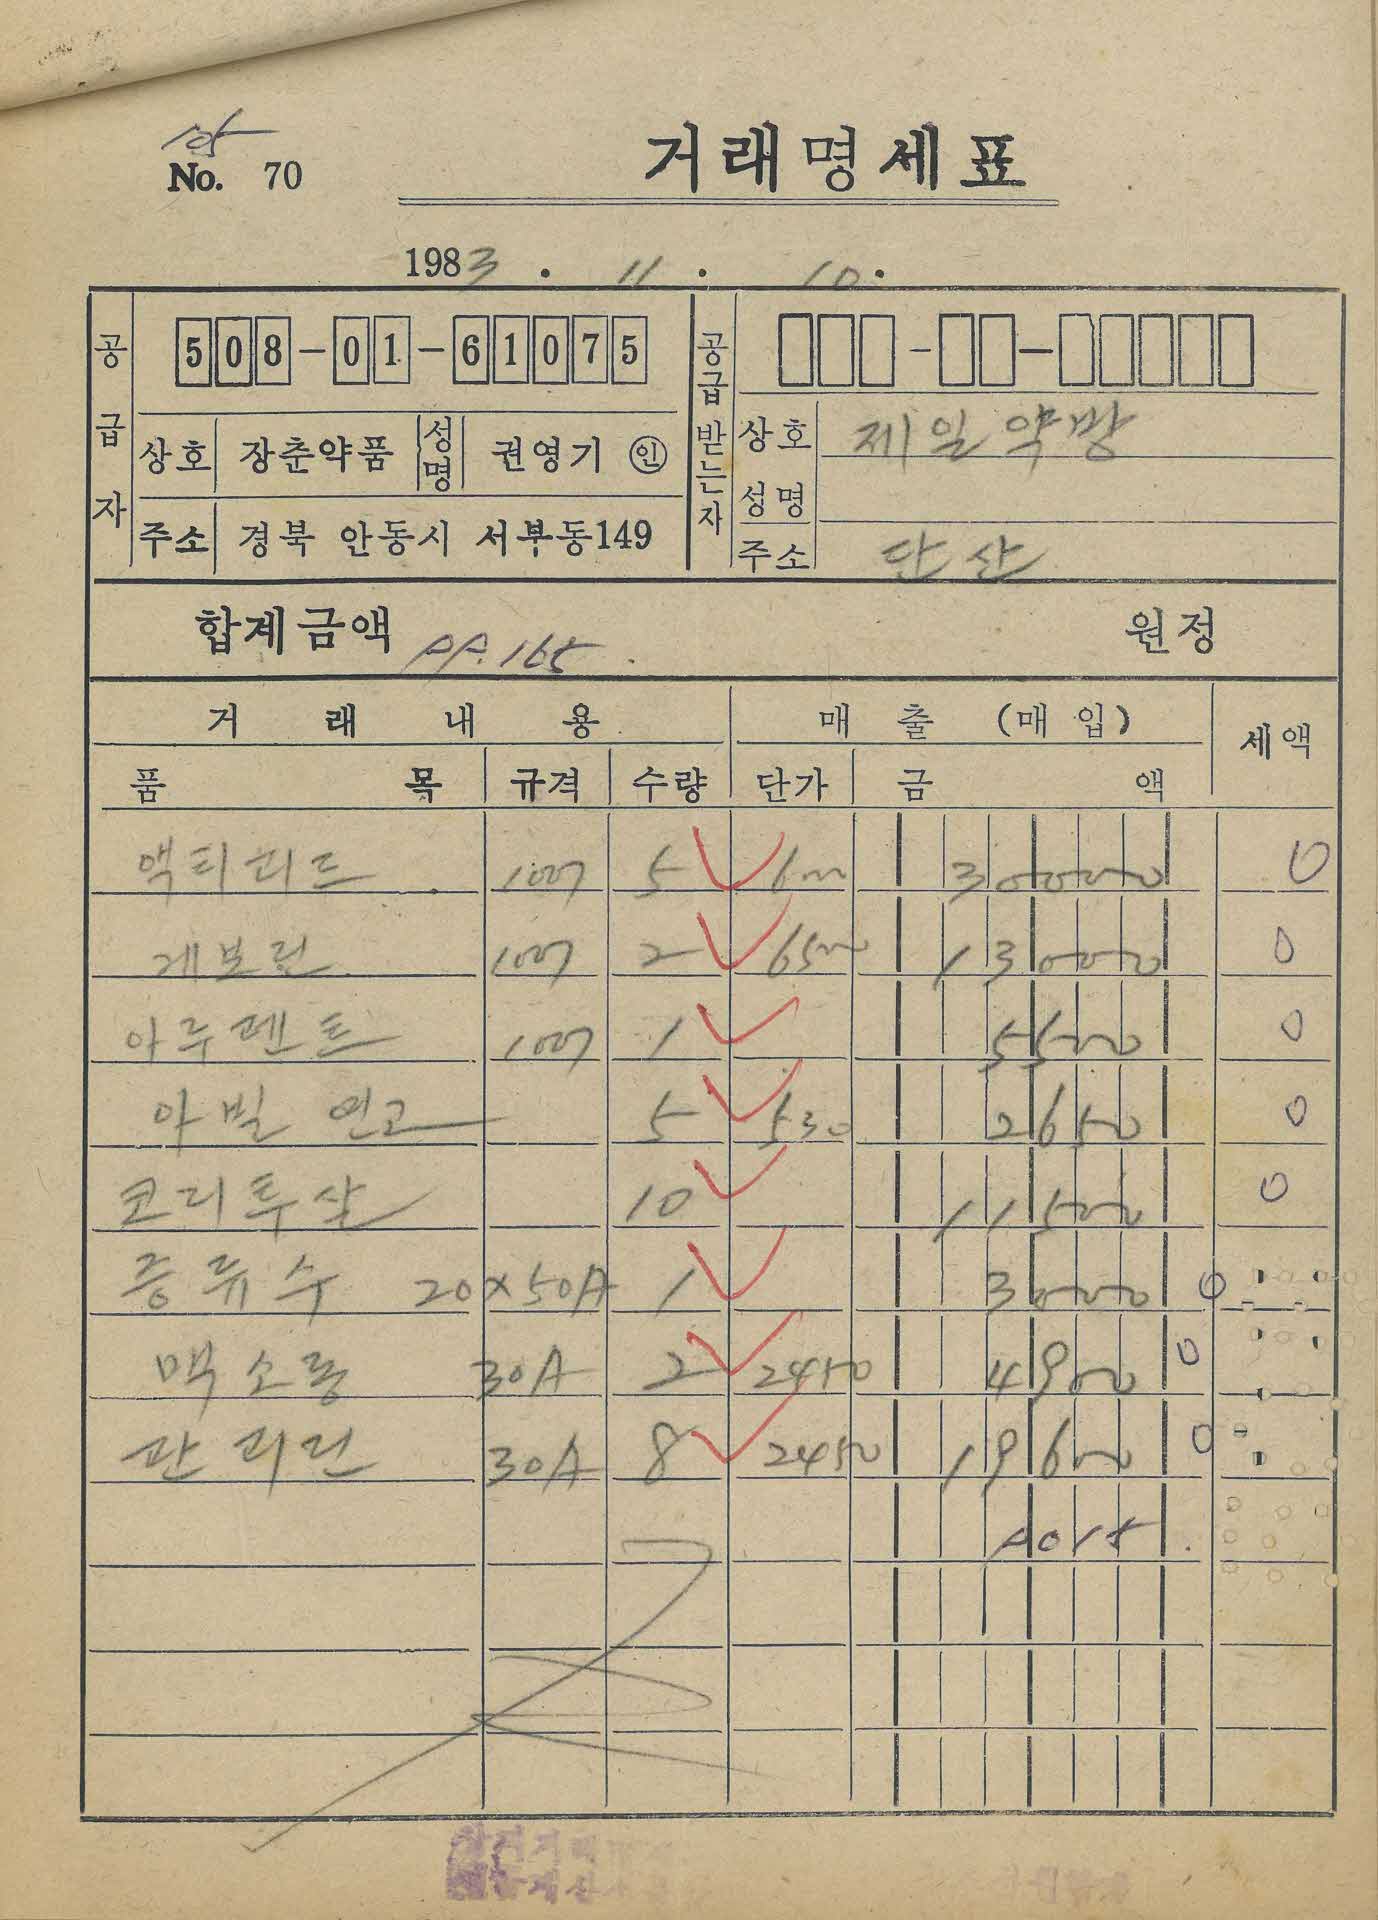 No. 70
거래명세표
1983. 11. 10.
공급자
508-01-61075
상호 장춘약품 성명 권영기 인
주소 경북 안동시 서부동149
공급받는자
상호 제일약방
성명
주소 단산
합계금액 원정
거래내용 매출 (매입) 세액
품목 규격 수량 단가 금액
액티피드 100T 5 6000 30000 0
게보린 100T 2 6500 13000 0
아루펜트 100T 1 5500 0
아빌 연고 5 530 2650 0
코리투살 10 11500 0
증류수 20x50A 1 3000 0
맥소롱 30A 2 2450 4900 0
판피린 30A 8 2450 19600 0